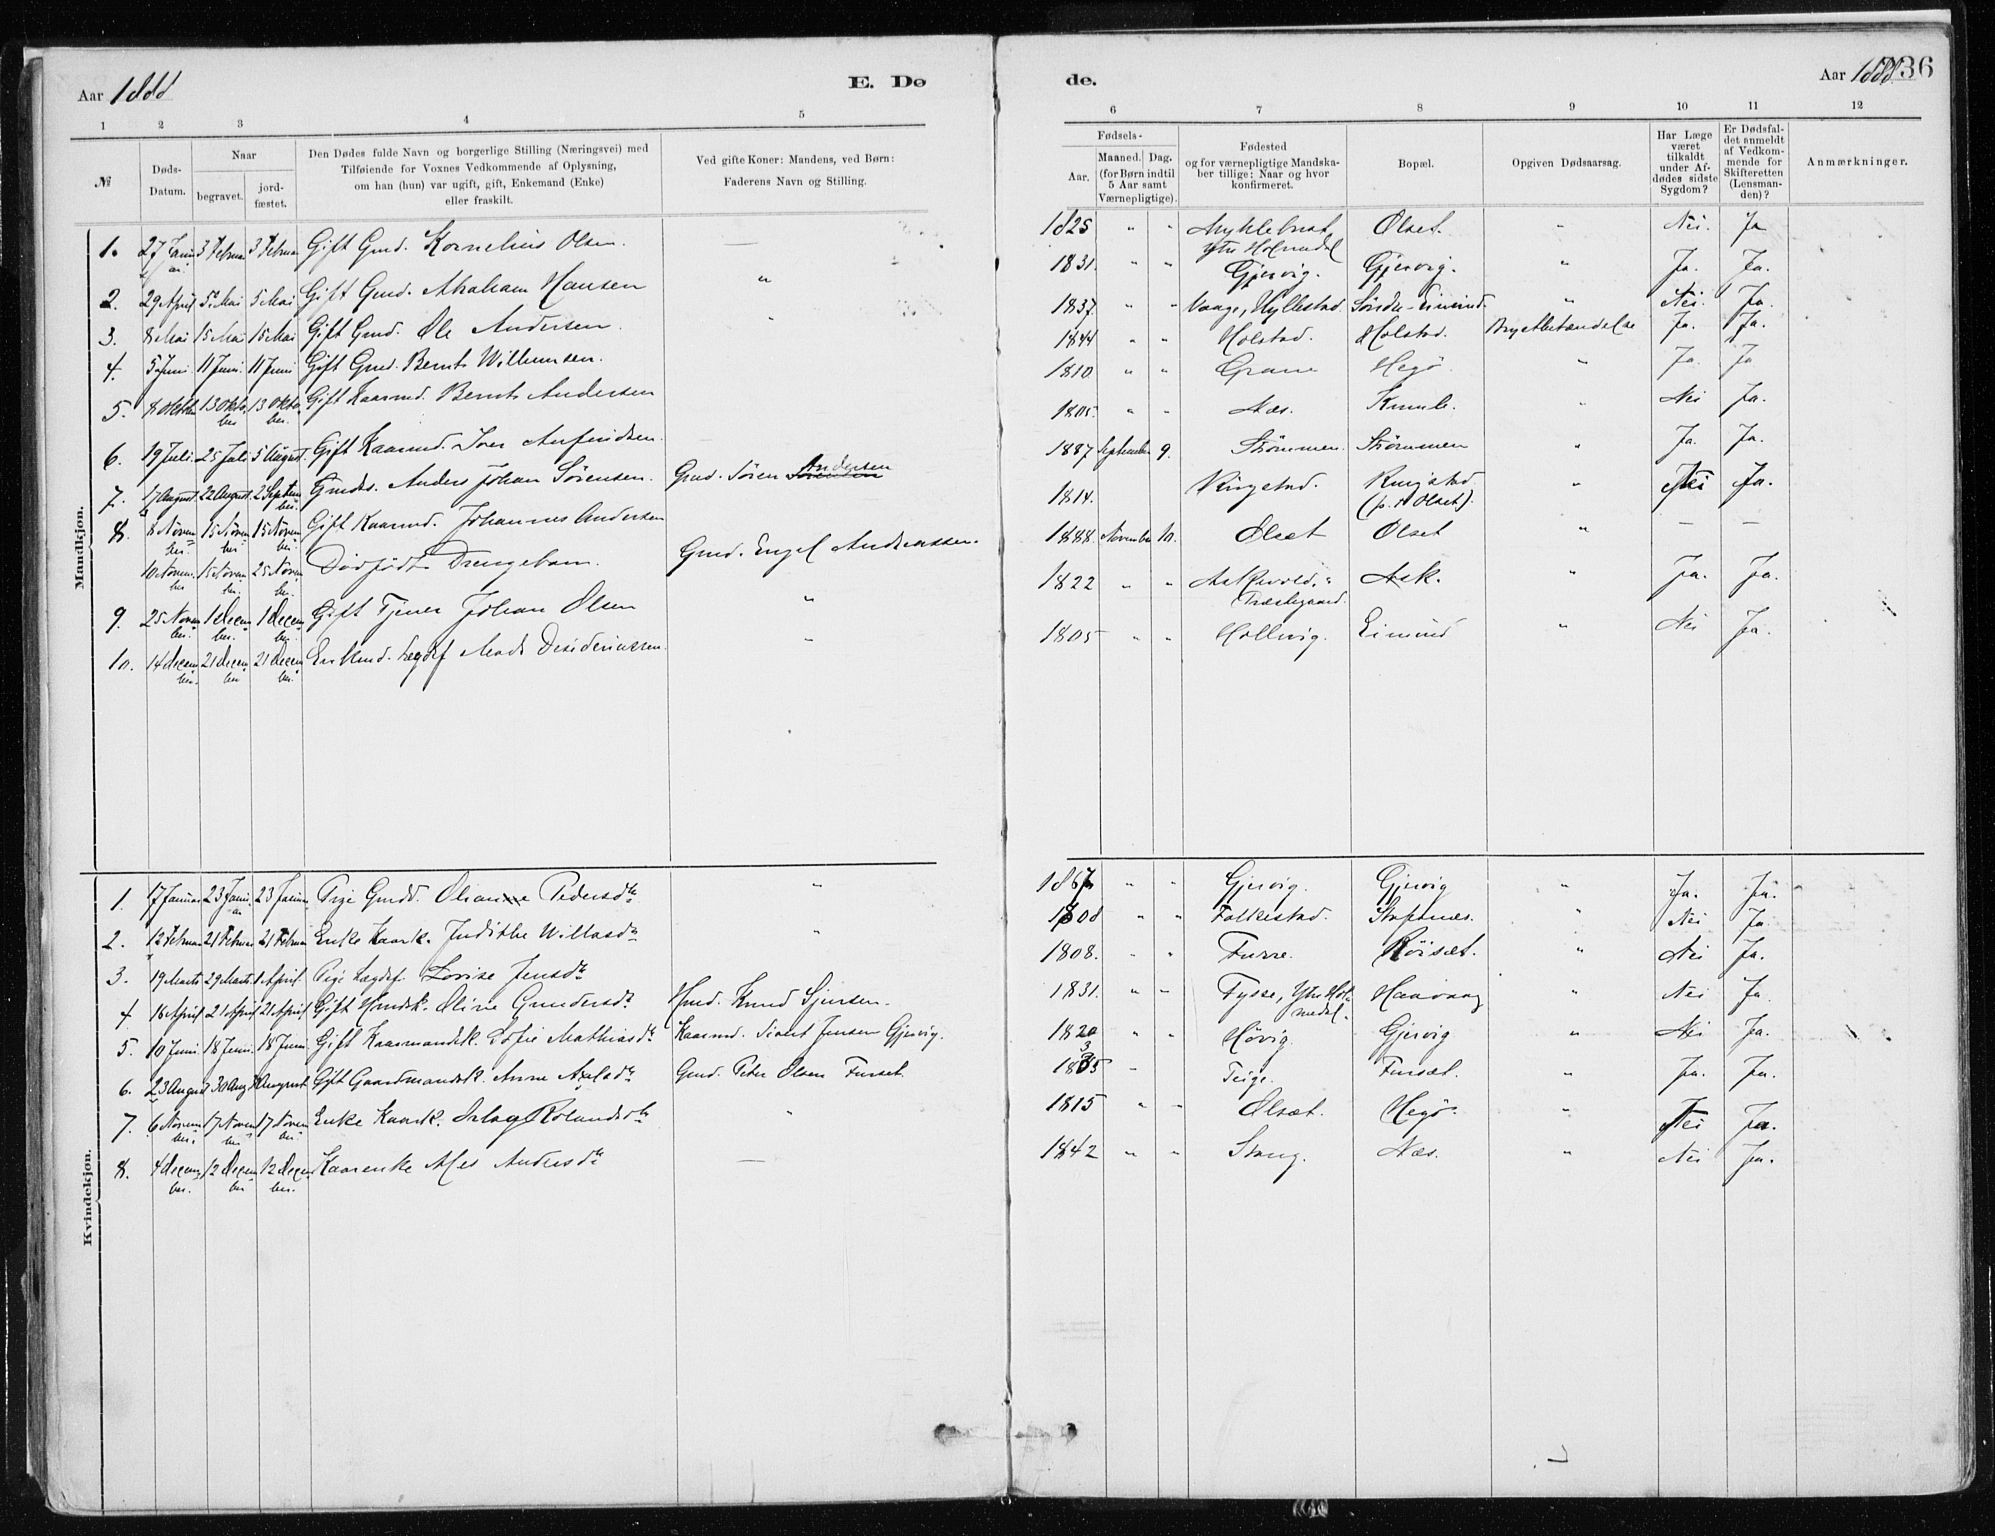 Aar 1888
E. Dø
de.
Aar 1888
36
1 2 3 4 5
6 7 8 9 10 11 12
№
Døds-
Datum.
Naar
begravet.
jord-
fæstet.
Den Dødes fulde Navn og borgerlige Stilling (Næringsvei) med
Tilføiende for Voxnes Vedkommende af Oplysning,
om han (hun) var ugift, gift, Enkemand (Enke)
eller fraskilt.
Ved gifte Koner: Mandens, ved Børn:
Faderens Navn og Stilling.
Fødsels-
Aar.
Maaned. Dag.
(for Børn indtil
5 Aar samt
Værnepligtige).
Fødested
og for værnepligtige Mandska-
ber tillige: Naar og hvor
konfirmeret.
Bopæl.
Opgiven Dødsaarsag.
Har Læge
været
tilkaldt
under Af-
dødes sidste
Sygdom?
Er Dødsfal-
det anmeldt
af Vedkom-
mende for
Skifteretten
(Lensman-
den)?
Anmærkninger.
Mandkjøn.
1. 27 Januar 3 Februar 3 Februar Gift Gmd. Kornelius Olsen. — 1825 " " Myklebust, Ytre Holmedal Olset. " Nei. Ja
2. 29 April 5 Mai 5 Mai Gift Gmd. Abraham Hansen " 1831. " " Gjervig. Gjervig. " Ja. Ja.
3. 8 Mai 15 Mai 15 Mai Gift Gmd. Ole Andersen. " 1837. " " Vaage, Hyllestad Søndre-Eimind. " Nei. Ja.
4. 5 Juni 11 Juni. 11 Juni Gift Gmd. Bernt Willumsen. 1844 " " Holstad. Holstad. Brystbetændelse Ja. Ja.
5. 8 Oktober 13 Oktober 13 Oktober. Gift Kaarmd. Bernt Andersen 1810 " " Grane Hegø. " Ja. Ja
6. 19 Juli. 25 Juli 5 August. Gift Kaarmd. Iver Arfindsen. 1805. " " Næs. " Nei Ja.
7. 17 August 22 August 2 September. Gmds. Anders Johan Sørensen. Gmd. Sören Andersen 1887 September 9. Strømmen. Strømmen " Ja. Ja.
8. 8 November. 15 November 15 November. Gift Kaarmd. Johannes Andersen 1814. Ringstad. Ringstad (p. t. Olset). " Nei Ja.
10 November 15 November. 25 November. Dødfødt Drengebarn. Gmd. Engel Andreassen. 1888. November 10. Olset Olset " — —
9. 25 November. 1 December. 1 December. Gift Tjener Johan Olsen " 1822 " " Askevold, Præstegaard. Ask. " Ja. Ja.
10. 14 December. 21 December 21 December. Enkmd. Lægdsl Mads Desideriussen. " 1805 " " Eimind " Nei Ja.
Kvindekjøn.
1. 17 Januar 23 Januar 23 Januar Pige Gmdd. Olianne Pedersdtr " 1867 " " Gjervig. Gjervig " Ja. Ja.
2. 12 Februar 21 Februar 21 Februar Enke Kaark. Judithe Willasdtr " 1808 " " Folkestad. Stafsnæs. " Nei Ja.
3. 19 Marts 29 Marts 1 April. Pige Lægdsl. Lovise Jensdtr 1808. " " Furre. Röiset. " Nei Ja.
4. 16 April 21 April 21 April Gift Hmdsk. Oline Gundersdtr Hmd. Knud Sjursen. 1831. " " Fysse, Ytre Holmedal. Haavaag " Nei Ja
5. 10 Juni 18 Juni. 18 Juni. Gift Kaarmandsk. Sofie Mathiasdtr Kaarmd. Sivert Jensen Gjervig. 1820 " " Høvig. Gjervig " Nei Ja.
6. 23 August 30 Aug. August Gift Gaardmandsk. Anne Axelsdtr Gmd. Peter Olsen Furset. 1835 " Teige. Furset. " Ja. Ja.
7. 6 November. 17 November 17 November Enke Kaark. Rolandsdtr " 1815 " " Olset. Hegø. " Nei Ja.
8. 4 December. 12 December 12 December. Kaarenke Andersdtr — 1842 " " Stang. Næs. " Nei Ja.